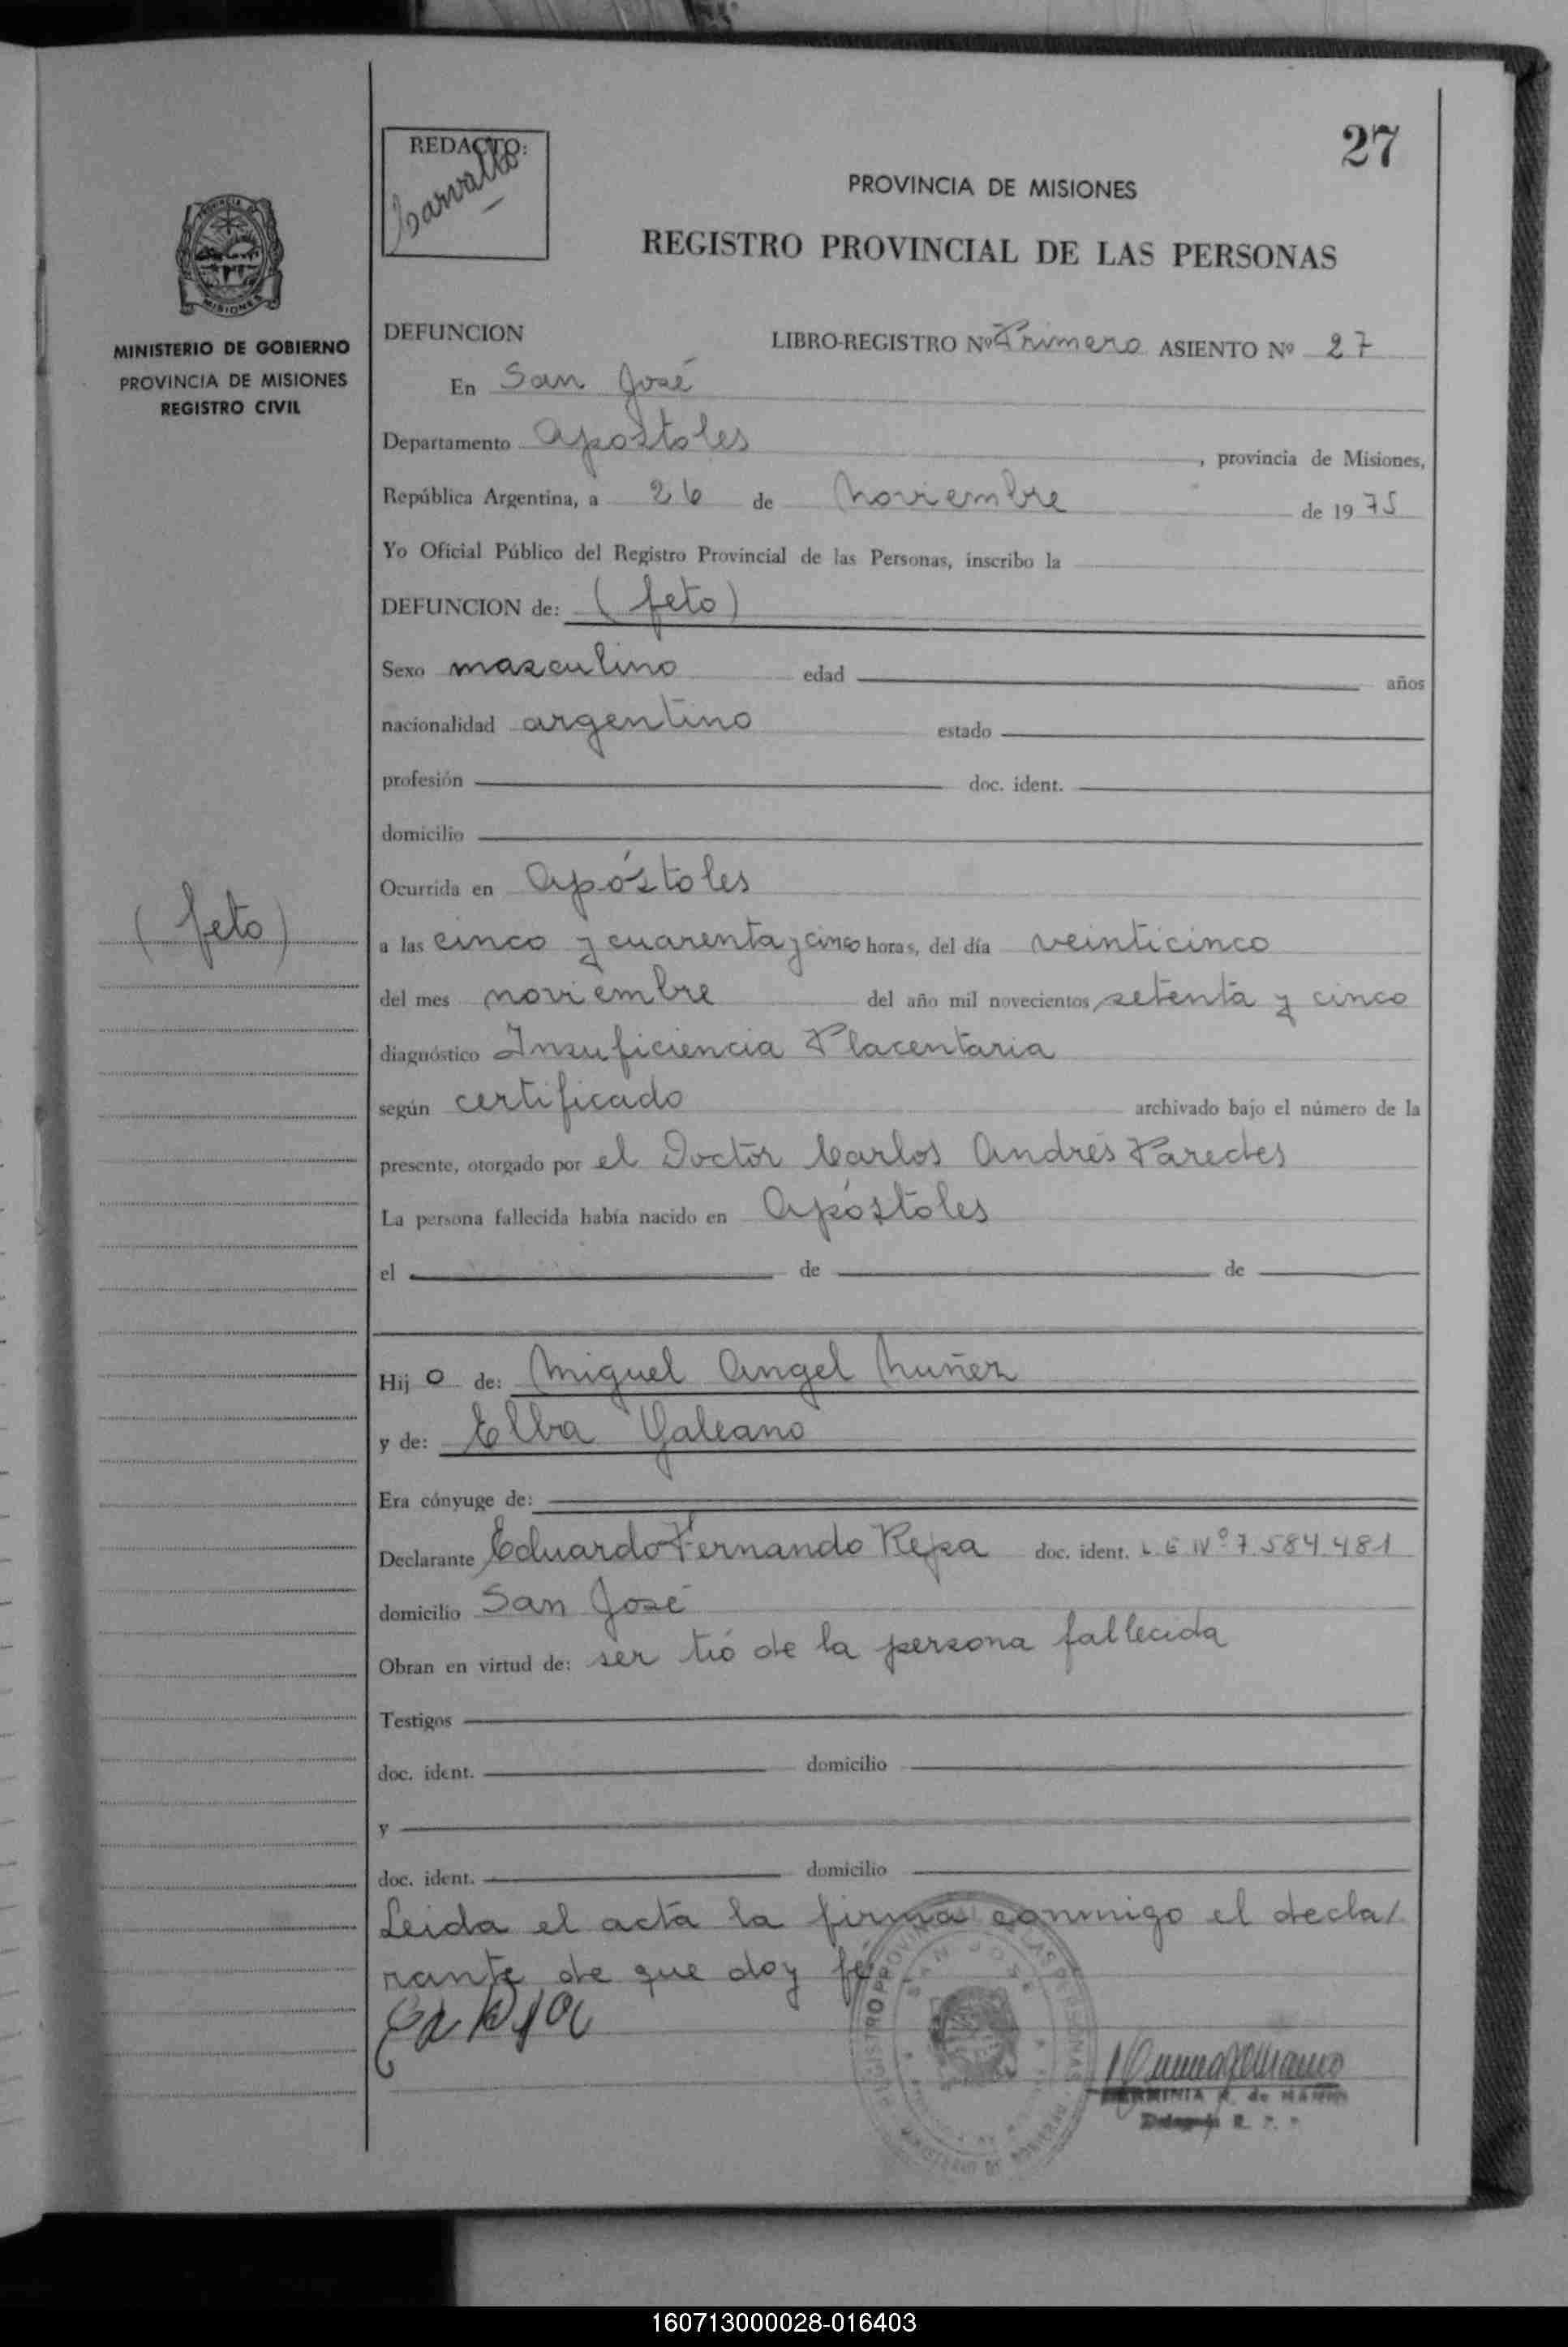 27
REDACTO:
Carvallo
PROVINCIA DE MISIONES
REGISTRO PROVINCIAL DE LAS PERSONAS
MISIONES
MINISTERIO DE GOBIERNO
PROVINCIA DE MISIONES
REGISTRO CIVIL
DEFUNCION LIBRO-REGISTRO Nº Primero ASIENTO Nº 27
En San José
Departamento Apostoles, provincia de Misiones,
República Argentina, a 26 de Noviembre de 1975
Yo Oficial Público del Registro Provincial de las Personas, inscribo la
DEFUNCION de: (feto)
Sexo masculino edad años
nacionalidad argentino estado
profesión doc. ident.
domicilio
Ocurrida en Apóstoles
(feto)
a las cinco y cuarenta y cinco horas, del día veinticinco
del mes noviembre del año mil novecientos setenta y cinco
diagnóstico Insuficiencia Placentaria
según certificado archivado bajo el número de la
presente, otorgado por el Doctor Carlos Andrés Paredes
La persona fallecida había nacido en Apóstoles
el de de
Hijo de: Miguel Angel Nuñez
y de: Elba Galeano
Era cónyuge de:
Declarante Eduardo Fernando Repa doc. ident. L E Nº 7.584.481
domicilio San José
Obran en virtud de: ser tió de la persona fallecida
Testigos
doc. ident. domicilio
y
doc. ident. domicilio
Leida el acta la firma conmigo el decla/
rante de que doy fé
SAN JOSE
HERMINIA de
160713000028-016403